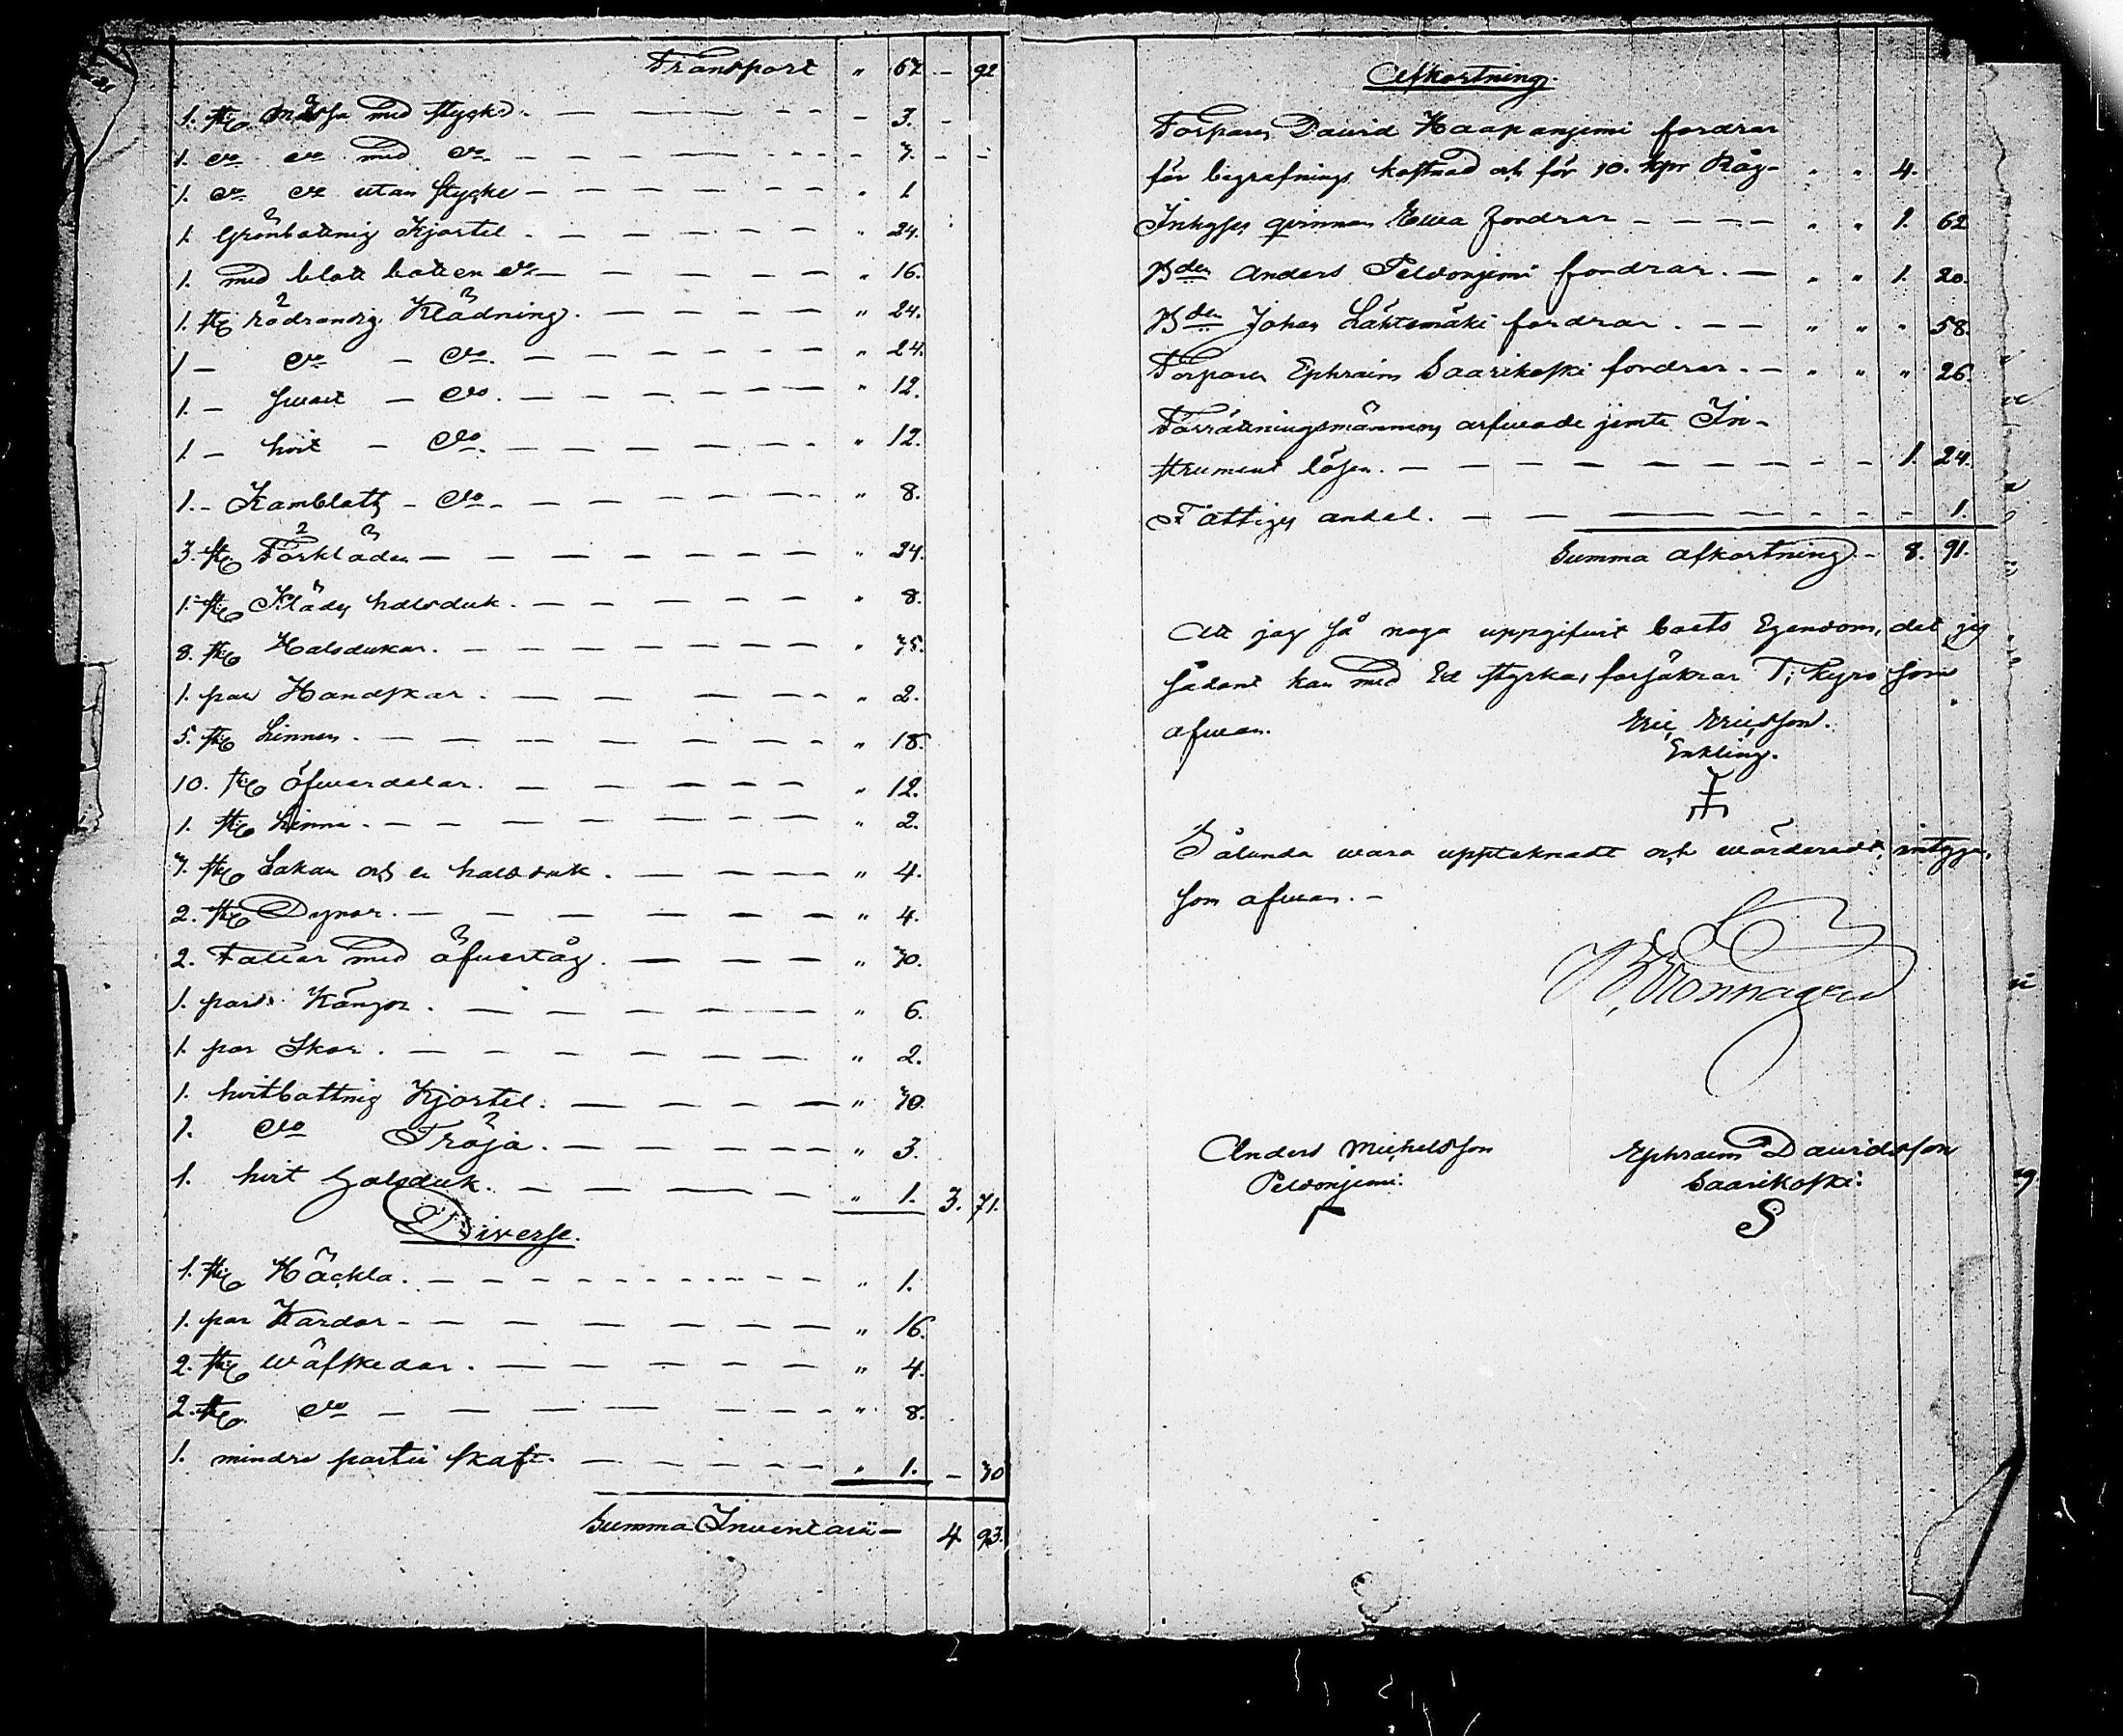 Transport " 67 - 92
1. st. Mössa med stycke. - 3. -
1. do do med do - 7. - -
1. do do utan stycke - " 1
1. Grönbottnig Kjortel. " 24.
1. med blott botten do " 16.
1. st. rödrandig Klädning. " 24.
1 - do - do. " 24.
1. - swart - do. " 12.
1. - hvit - do. " 12.
1. - Kamblotts - do. " 8.
3. st. Förkläden - " 24.
1. st. Klädes halsduk. " 8.
8. st. Halsdukar. " 75.
1. par Handskar. " 2.
5. st. Linnen. " 18.
10. st. öfwerdelar. " 12.
1. st. Linne. " 2.
7. st. Lakan och en halsduk. " 4.
2. st. Dynor. " 4.
2. Fällar med öfwertåg. " 70.
1. par Kängor. " 6.
1. par Skor. " 2.
1. hvitbottnig Kjortel. " 70.
1. do Tröja. " 3.
1. hvit halsduk. " 1. 3. 71.
Diverse.
1. st. Häckla. " 1.
1. par Kardor - " 16.
2. st. wäfskedar. " 4.
2. st. do - " 8.
1. mindre partii skaft. " 1. - 30
Summa Inventarii - 4 93.
Afkortning.
Torparen David Haapanjemi fordrar
för begrafnings kostnad och för 10. kpr Råg - " " 4.
Inhyses qvinnan Ewa fordrar - " " 1. 62
Bden Anders Peldonjemi fordrar. - " " 1. 20.
Bden Johan Lähtemäki fordrar. - " " " 58.
Torparen Ephraim Saarikoski fordrar. - " " " 26.
Förrättningsmännens arfwode jemte In-
strument lösen. - 1. 24.
Fattiges andel. - 1.
Summa afkortning - 8. 91.
Att jag så noga uppgifwit boets Egendom, det jag
sådant kan med Ed styrka, försäkrar T, Kyro som
ofwan. Eric Ericsson.
Enkling.
Sålunda wara uppteknadt och wärderadt, intyga,
som ofwan. -
Anders Michelsson Ephraim Davidsson
Peldonjemi. Saarikoski.
S